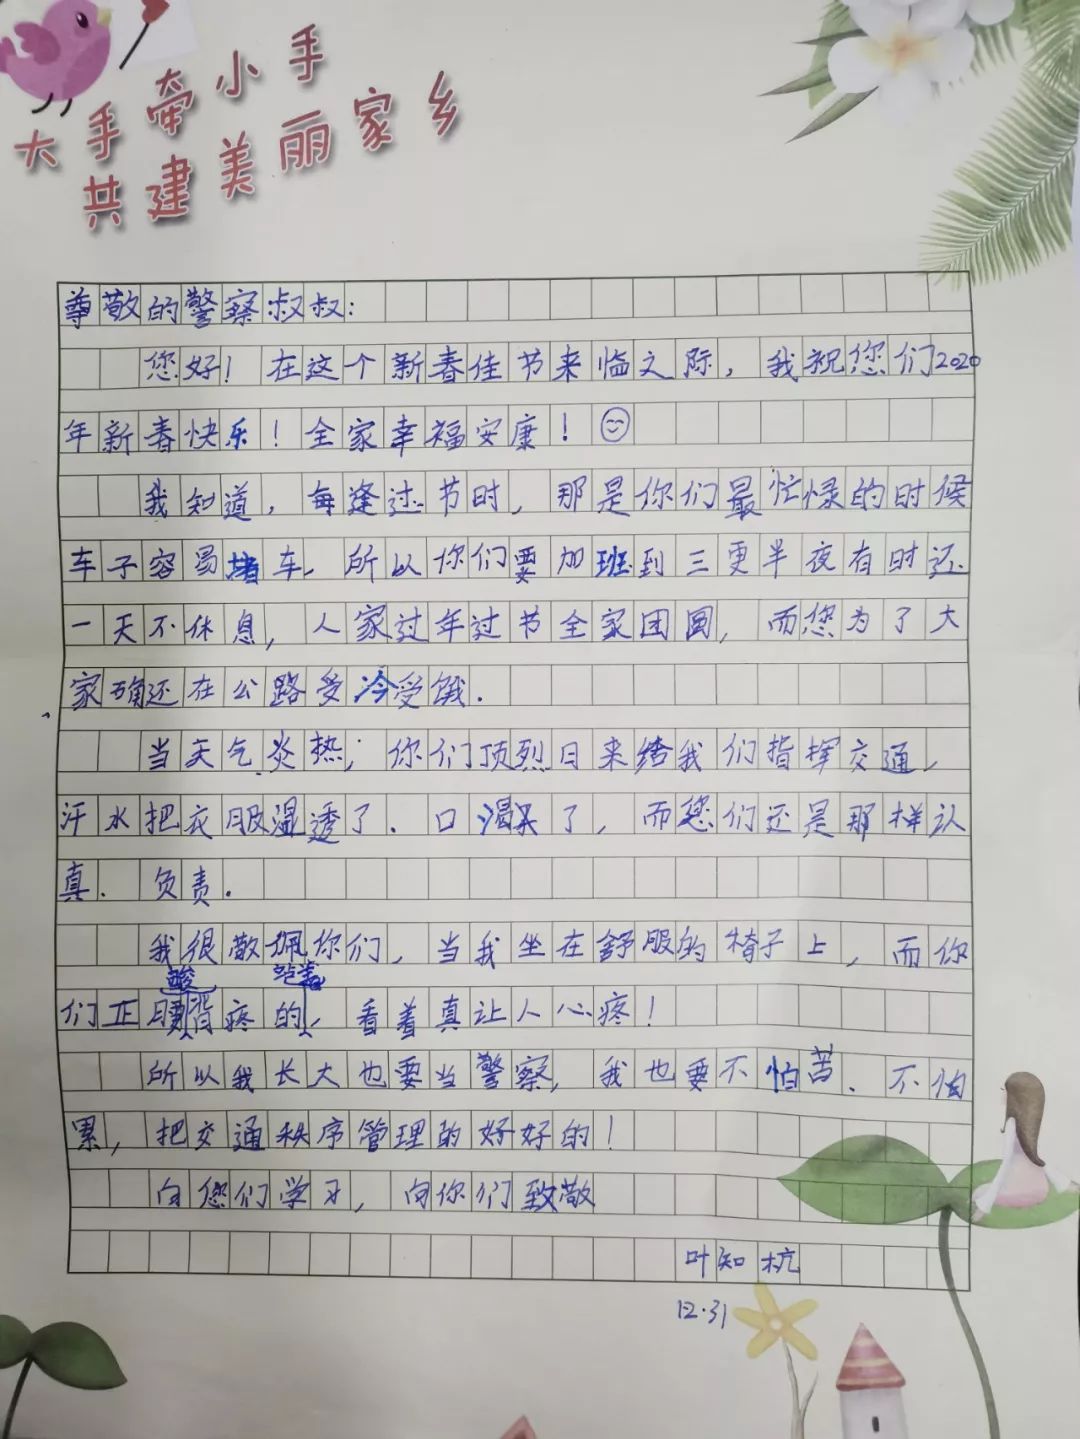 大手牵小手
共建美丽家乡
尊敬的警察叔叔：
您好！在这个新春佳节来临之际，我祝您们2020
年新春快乐！全家幸福安康！
我知道，每逢过节时，那是你们最忙碌的时候
车子容易堵车，所以你们要加班到三更半夜有时还
一天不休息，人家过年过节全家团圆，而您为了大
家确还在公路受冷受饿.
当天气炎热；你们顶烈日来给我们指挥交通，
汗水把衣服湿透了.口渴了，而您们还是那样认
真.负责.
我很敬佩你们，当我坐在舒服的椅子上，而你
们正腰酸背疼的站着，看着真让人心疼！
所以我长大也要当警察，我也要不怕苦.不怕
累，把交通秩序管理的好好的！
向您们学习，向你们致敬
叶知杭
12.31